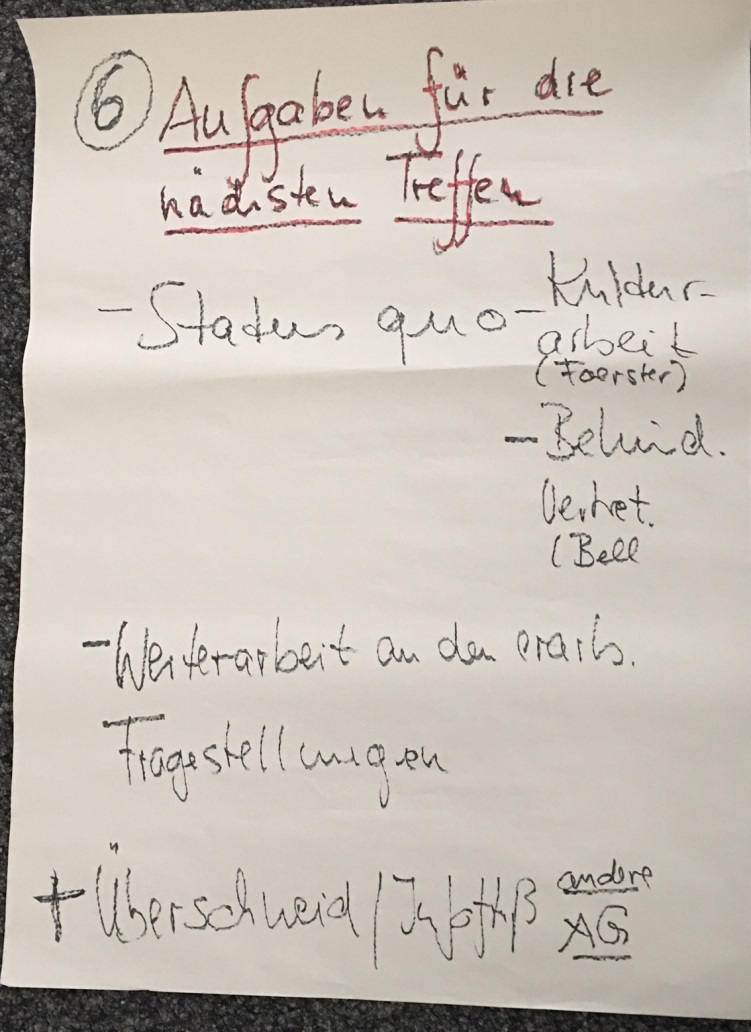 6 Aufgaben für die
nächsten Treffen
- Status quo - Kultur-
arbeit
(Foerster)
- Behind.
Vertret.
(Bell
- Weiterarbeit an den erarb.
Fragestellungen
+ Überschneid/Infofluß andere
AG